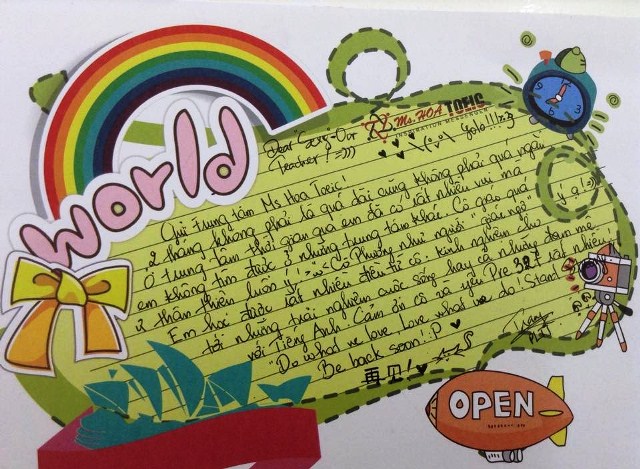 world
Ms. HOA TOEIC
Dear Ca... - Our Teacher! =)))
yolo!!! :3
Gửi trung tâm Ms Hoa Toeic!
2 tháng không phải là quá dài cũng không phải quá ngắn
Ở trung tâm thời gian qua em đã có rất nhiều vui mà
em không tìm được ở những trung tâm khác. Cô giáo quá
thân thiện luôn ý! >'w'< Cô Phương như người "giác ngộ" y'ạ! (:)))
Em học được rất nhiều điều từ cô. Kinh nghiệm cho
tới những trải nghiệm cuộc sống hay cả những đam mê
với Tiếng Anh. Cảm ơn cô và yêu Pre 327 rất nhiều!
"Do what we love love what we do! Stand
Be back soon! :P
再见!
OPEN